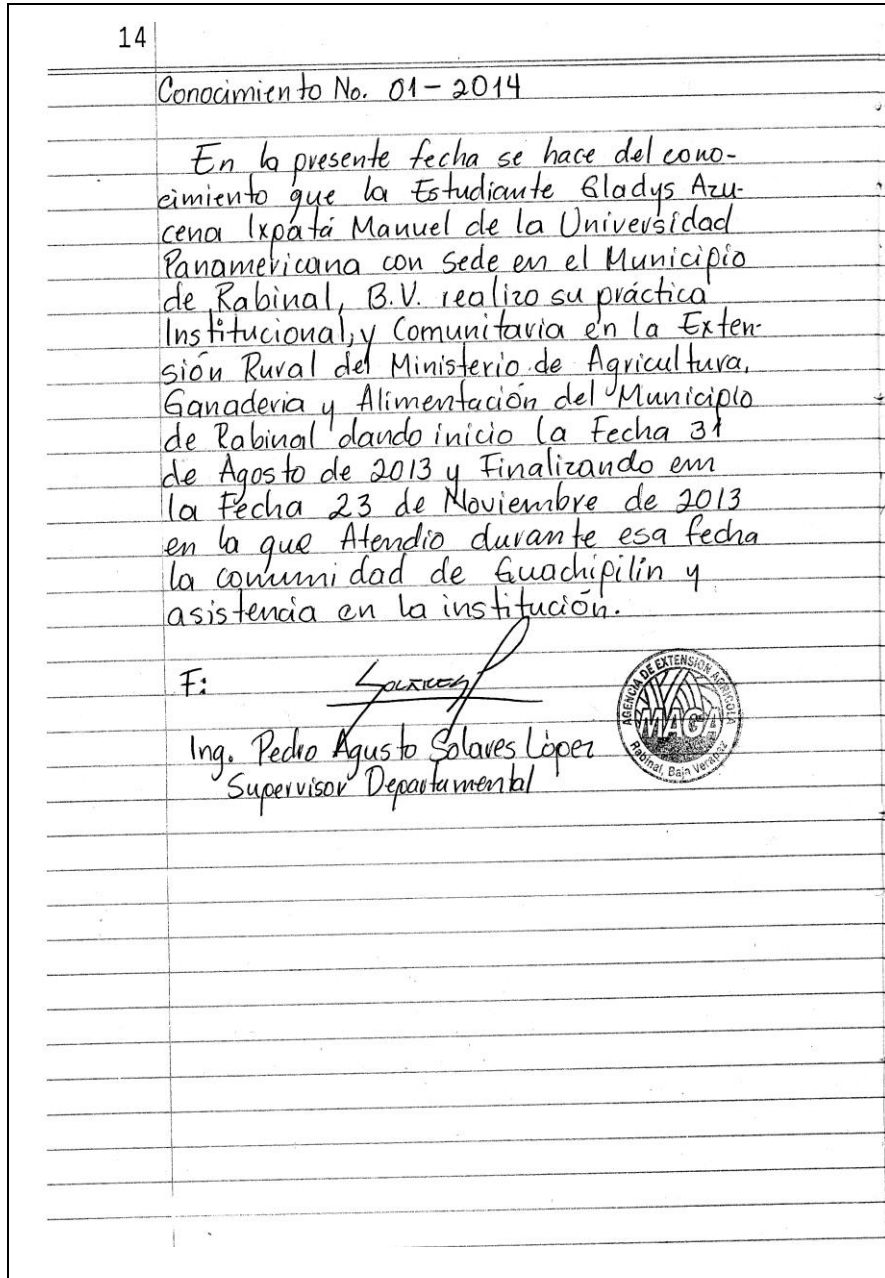 14
Conocimiento No. 01-2014
En la presente fecha se hace del cono-
cimiento que la Estudiante Gladys Azu-
cena Ixpatá Manuel de la Universidad
Panamericana con sede en el Municipio
de Rabinal, B.V. realizo su práctica
Institucional, y Comunitaria en la Exten-
sión Rural del Ministerio de Agricultura,
Ganaderia y Alimentación del Municipio
de Rabinal dando inicio la Fecha 31
de Agosto de 2013 y Finalizando em
la Fecha 23 de Noviembre de 2013
en la que Atendio durante esa fecha
la comunidad de Guachipilín y
asistencia en la institución.
F:
Ing. Pedro Agusto Solares López
Supervisor Departamental
AGENCIA DE EXTENSION AGRICOLA
MAGA
Rabinal, Baja Verapaz